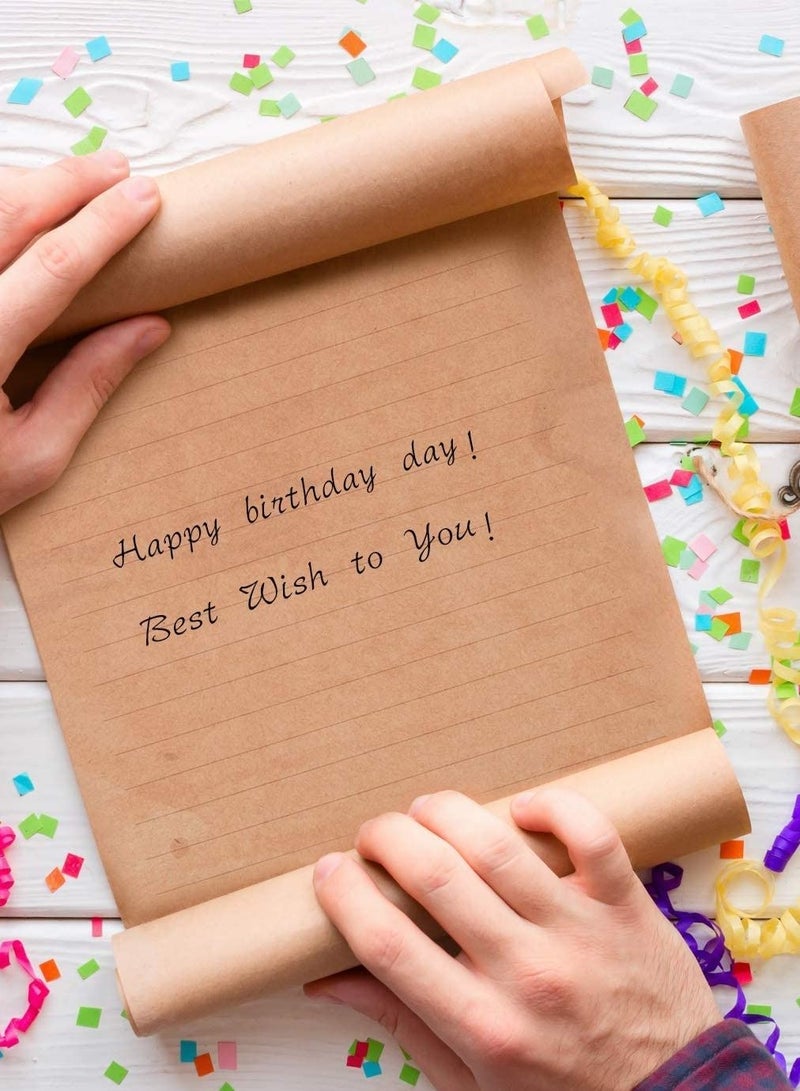 Happy birthday day!
Best Wish to You!